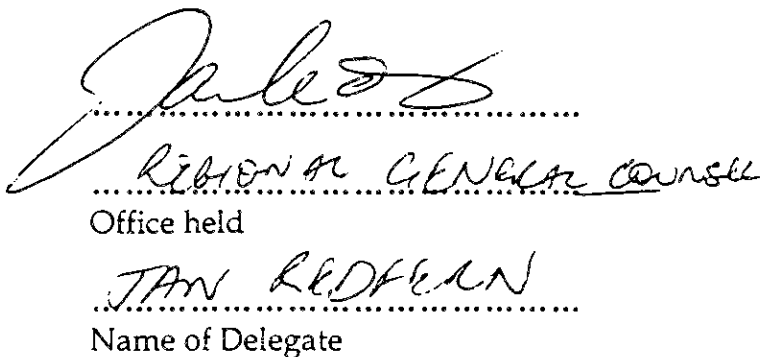 REGIONAL GENERAL COUNSEL
Office held
JAN REDFERN
Name of Delegate